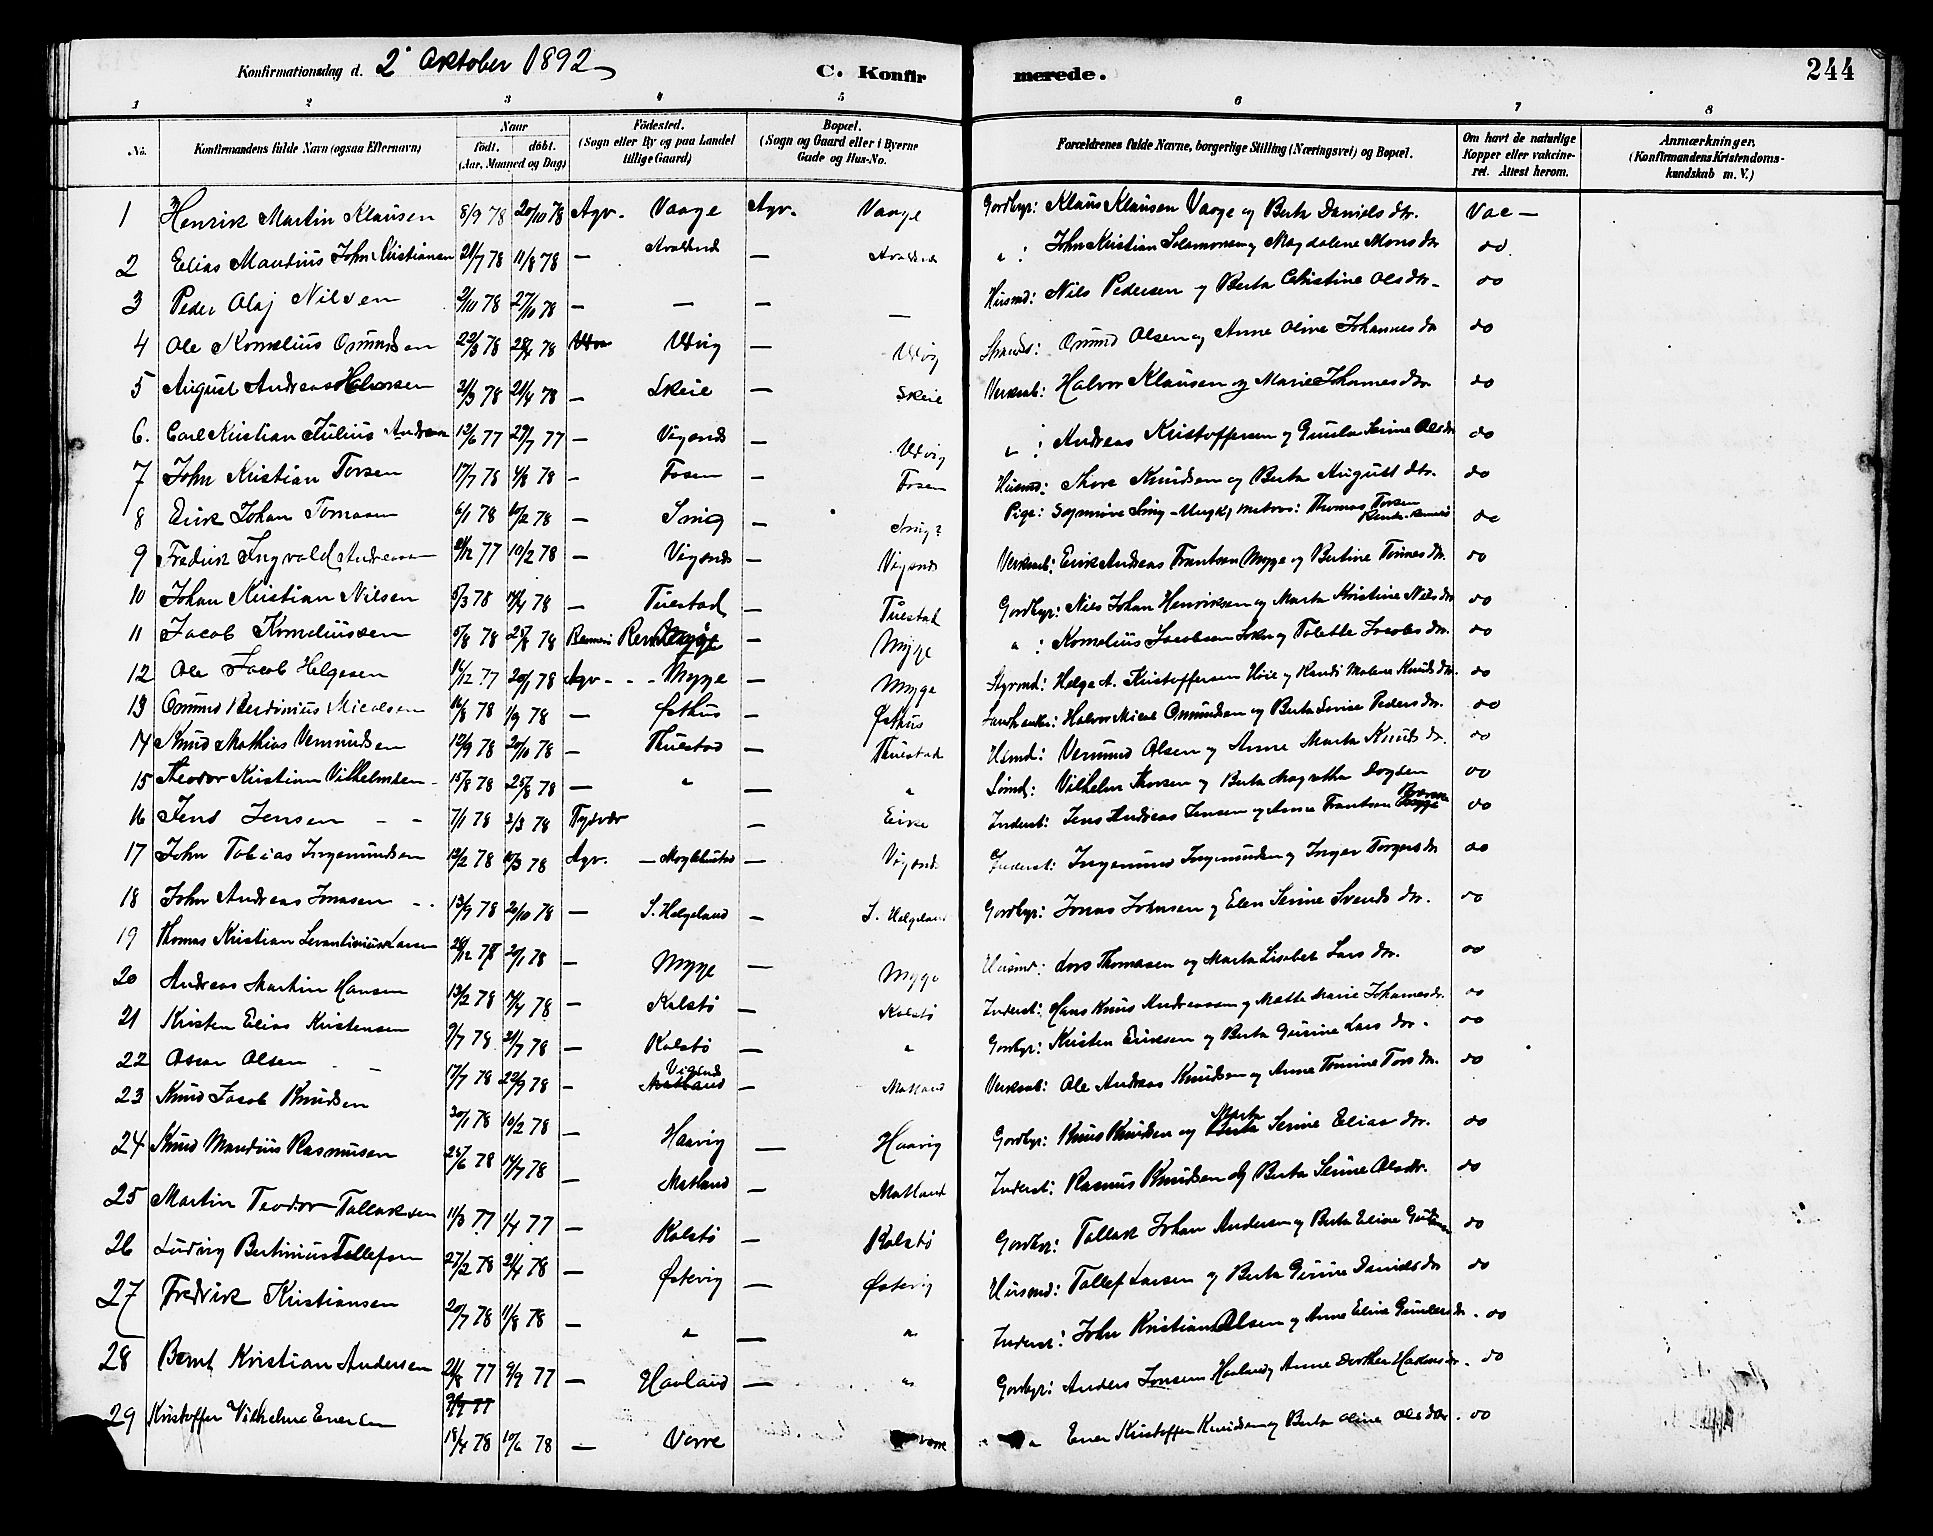 Konfirmationsdag d. 2' Oktober 1892 C. Konfirmerede. 244
1 2 3 4 5 6 7 8
No. Konfirmandens fulde Navn (ogsaa Efternavn) Naar födt. döbt. (Aar, Maaned og Dag) Födested. (Sogn eller By og paa Landet tillige Gaard) Bopæl. (Sogn og Gaard eller i Byerne Gade og Hus-No. Forældrenes fulde Navne, borgerlige Stilling (Næringsvei) og Bopæl. Om havt de naturlige Kopper eller vakcineret. Attest herom. Anmærkninger. (Konfirmandens Kristendomskundskab m. V.)
1 Henrik Martin Klausen 8/9 78 20/10 78 Agv. Vaage Agv. Vaage Gordbgr: Klaus Klausen Vaage og Berta Daniels dtr. Vac —
2 Elias Mandius John Kristiansen 21/7 78 11/8 78 — Avaldsnæs — John Kristian Salamonsen og Magdalene Mons dtr do
3 Peder Olaj Nilsen 2/10 78 27/10 78 — — — — Husmd: Nils Pedersen og Berta Christine Olsdtr. do
4 Ole Kornelius Osmundsen 22/3 78 28/4 78 Utvig — Utvig Osmund Olsen og Anne Oline Johannes dtr do
5 August Andreas Halvorsen 2/3 78 21/4 78 — Skeie — Skeie Halvor Klausen og Marie Johannes dtr. do
6. Carl Kristian Julius Andreasen 12/6 77 29/7 77 — Vigsnæs — Utvig " : Andreas Kristoffersen og Gunla Serine Olsdtr do
7 John Kristian Torsen 17/7 78 4/8 78 — Fosen — Fosen Husmd: Thore Knudsen og Berta August dtr. do
8 Erik Johan Tomasen 6/1 78 10/2 78 — Snig — Snig? Pige: Thomas Torsen do
9 Fredrik Ingvald Andreasen 21/12 77 10/2 78 — Vigsnæs — Vigsnæs Erik Andreas Frantsen Mygge og Bertine Tinnes dtr. do
10 Johan Kristian Nilsen 5/3 78 14/4 78 — Tuestad — Tuestad Gordbgr: Nils Johan Henriksen og Marta Kristine Nils dtr do
11 Jacob Korneliussen 5/8 78 25/8 78 — Mygge " : Kornelius Jacobsen og Tolette Jacobs dtr. do
12 Ole Jacob Helgesen 14/12 77 20/1 78 Agv - - - Mygge — Mygge Styrmd: Helge A. Kristoffersen Høie og Randi Malene Knuds dtr. do
13 Osmund Berdinius Micalsen 16/8 78 1/9 78 — Østhus — Østhus Halvor Mical Osmundsen og Berta Serine Peders dtr. do
14 Knud Mathias Vermundsen 12/9 78 20/10 78 — Thuestad — Thuestad Husmd: Vermund Olsen og Anne Marta Knuds dtr. do
15 Theodor Kristian Vilhelmsen 15/8 78 25/8 78 — " — " Sømd: Vilhelm Thorsen og Berta Magretha do
16 Jens Jensen - - 7/1 78 3/3 78 Tysvær — Eike Inderst: Jens Andreas Jensen og Anna Frantsen do
17 John Tobias Ingemundsen 12/2 78 10/3 78 Agv. — — Vigsnæs Inderst: Ingemund Ingemundsen og Inger Torgers dtr do
18 John Andreas Jonasen - - 13/9 78 20/10 78 — S. Helgeland — S. Helgeland Gordbgr: Jonas Johnsen og Elen Serine Svends dtr. do
19 Thomas Kristian Levantinius Larsen 26/12 77 20/1 78 — Mygge — Mygge Husmd: Lars Thomasen og Marta Lisabet Lars dtr. do
20 Andreas Martin Hansen 13/2 78 14/4 78 — Kalstø — Kalstø Inderst: Hans Knud Andreassen og Mette Marie Johannes dtr. do
21 Kristen Elias Kristensen 9/7 78 21/7 78 — Kalstø — " Gordbgr: Kristen Eriksen og Berta Gurine Lars dtr. do
22 Oscar Olsen - - 17/7 78 22/9 78 — Vigsnæs Matland — Matland Ole Andreas Knudsen og Anne Tomine Tors dtr. do
23 Knud Jacob Knudsen 20/1 78 10/2 78 — Haavig — Haavig Gordbgr: Knud Knudsen og Marta Berta Serine Elias dtr. do
24 Knud Mandius Rasmusen 25/6 78 14/7 78 — Matland — Matland Inderst: Rasmus Knudsen og Berta Serine Olsdtr. do
25 Martin Teodor Tallaksen 11/3 77 1/4 77 — Kalstø — Kalstø Gordbgr: Tallak Johan Andersen og Berta Eline do
26 Ludvig Bertinius Tollefsen 27/2 78 21/4 78 — Østevig — Østevig Husmd: Tollef Larsen og Berta Gurine Daniels dtr do
27 Fredrik Kristiansen 20/7 78 11/8 78 — " — " Inderst: John Kristian Olsen og Anne Eline Gunders dtr. do
28 Bernt Kristian Andersen 24/8 77 9/9 77 — Havland — " Gordbgr: Anders Jonsen Haaland og Anne Dorthea dtr. do
29 Kristoffer Vilhelm Enersen 9/9 77 18/4 78 10/6 78 — Vorre Vorre " Ener Kristoffer Knudsen og Berta Oline Ols dtr. do